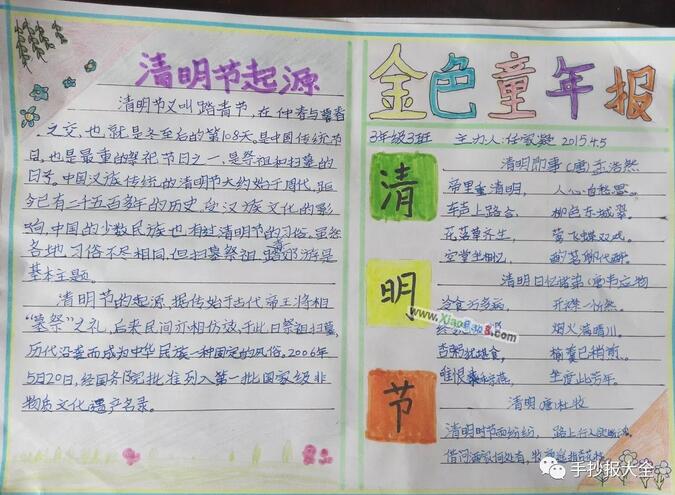 清明节起源
清明节又叫踏青节，在仲春与暮春
之交，也就是冬至后的第108天。是中国传统节
日，也是最重的祭祀节日之一，是祭祖和扫墓的
日子。中国汉族传统的清明节大约始于周代，距
今已有二千五百多年的历史。受汉族文化的影
响，中国的少数民族也有过清明节的习俗。虽然
各地习俗不尽相同，但扫墓祭祖、踏郊游是
基本主题。
清明节的起源，据传始于古代帝王将相
“墓祭”之礼，后来民间亦相仿效，于此日祭祖扫墓，
历代沿袭而成为中华民族一种固定的风俗。2006年
5月20日，经国务院批准列入第一批国家级非
物质文化遗产名录。
金色童年报
3年级3班 主办人：任家凝 2015.4.5
清
明
节
清明即事（唐）孟浩然
帝里重清明，人心自愁思。
车声上路合，柳色东城翠。
花落草齐生，莺飞蝶双戏。
空堂坐相忆，酌茗聊代醉。
清明日忆诸弟 唐韦应物
冷食方多病，开襟一忻然。
烟火满晴川。
杏粥犹堪食，榆羹已稍煎。
唯恨乖亲燕，坐度此芳年。
清明 唐杜牧
清明时节雨纷纷，路上行人欲断魂。
借问酒家何处有，牧童遥指杏花村。
www.XiaoBao8.com
手抄报大全